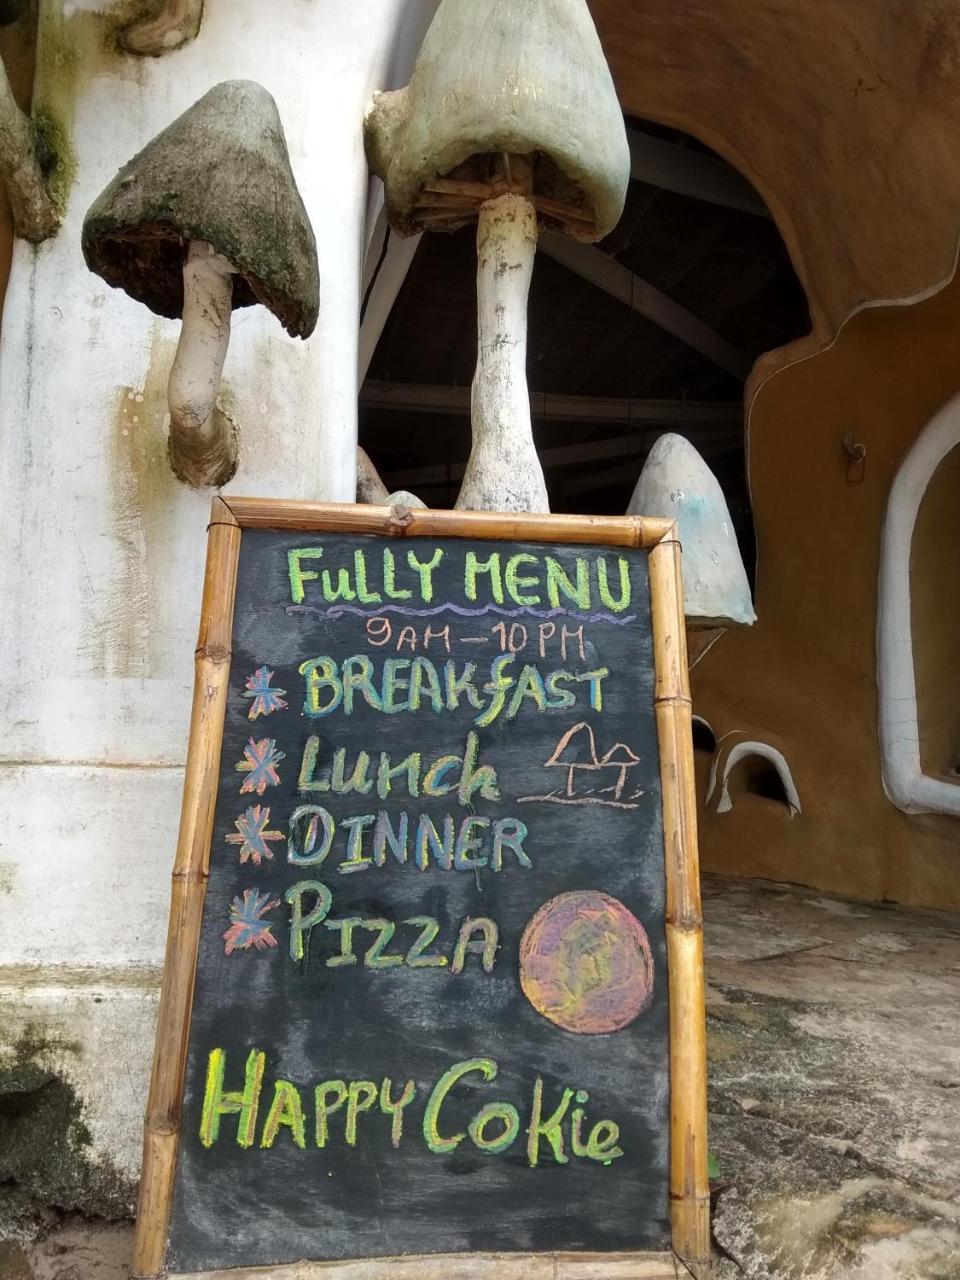 FuLLY MENU
9AM-10PM
BREAKfAST
Lunch
DINNER
PIZZA
HAPPY CoKie